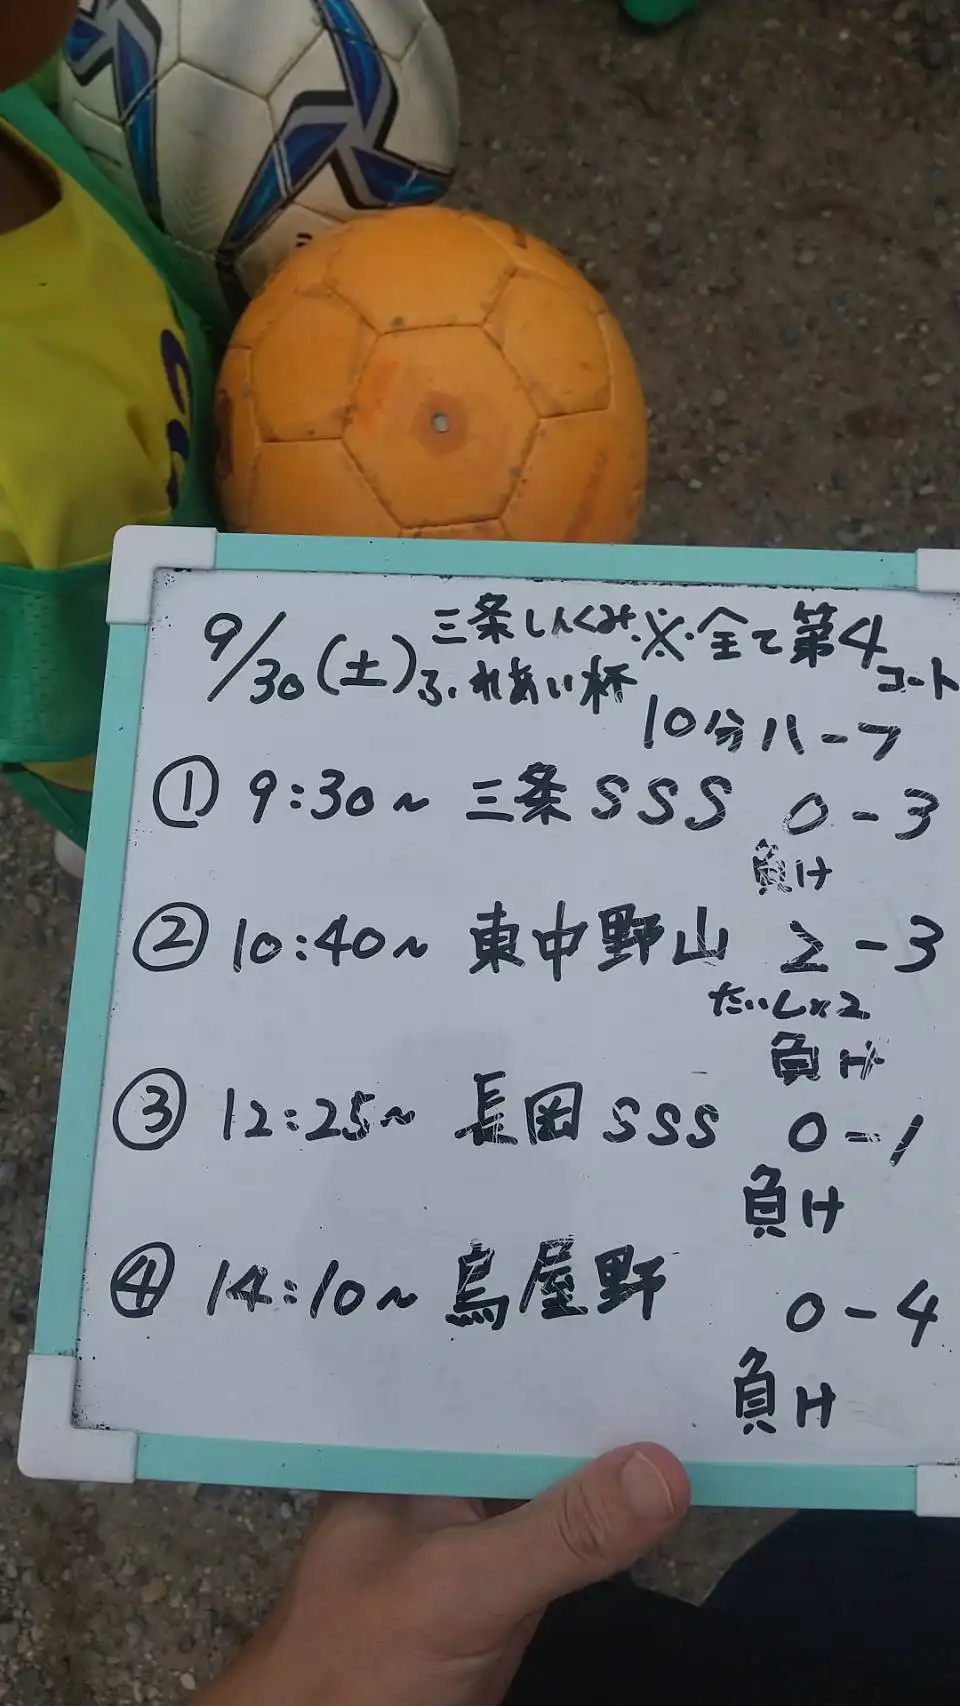 9/30(土) 三条しんくみ ※全て第4コート
ふれあい杯
10分ハーフ
① 9:30~ 三条SSS 0-3
負け
② 10:40~ 東中野山 2-3
たいし×2
負け
③ 12:25~ 長岡SSS 0-1
負け
④ 14:10~ 鳥屋野 0-4
負け